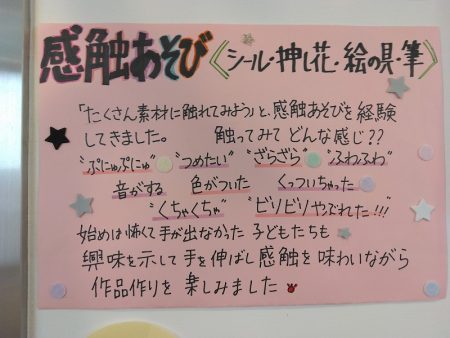 感触あそび《シール・押し花・絵の具・筆》
「たくさん素材に触れてみよう」と、感触あそびを経験
してきました。 触ってみてどんな感じ??
"ぷにゅぷにゅ" "つめたい" "ざらざら" "ふわふわ"
音がする 色がついた くっついちゃった
"くちゃくちゃ" "ビリビリやぶれた!!!"
始めは怖くて手が出なかった子どもたちも
興味を示して手を伸ばし感触を味わいながら
作品作りを楽しみました